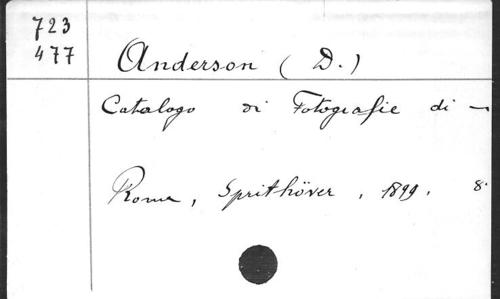 723
477
Anderson (D.)
Catalogo di Fotografie di —
Roma, Sprithöver, 1899. 8.